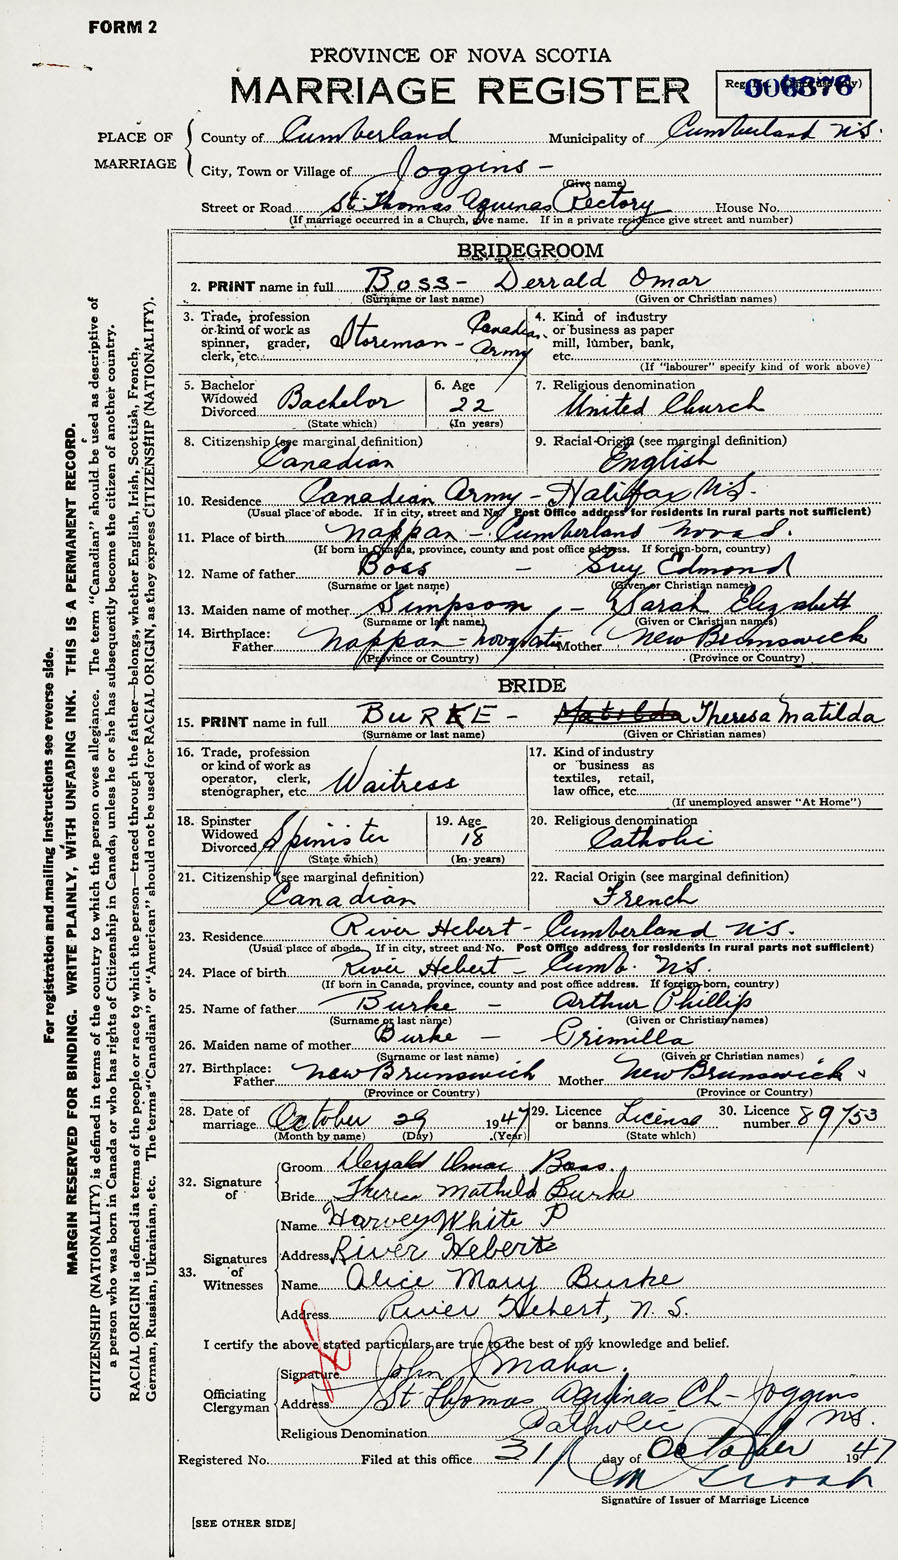 FORM 2
PROVINCE OF NOVA SCOTIA
MARRIAGE REGISTER
006376
PLACE OF MARRIAGE
County of Cumberland Municipality of Cumberland N.S.
City, Town or Village of Joggins -
(Give name)
Street or Road St. Thomas Aquinas Rectory House No.
(If marriage occurred in a Church, give name. If in a private residence give street and number)
BRIDEGROOM
2. PRINT name in full Boss - Derrald Omar
(Surname or last name) (Given or Christian names)
3. Trade, profession or kind of work as spinner, grader, clerk, etc. Storeman - Canadian Army
4. Kind of industry or business as paper mill, lumber, bank, etc.
(If "labourer" specify kind of work above)
5. Bachelor Widowed Divorced Bachelor
(State which)
6. Age 22
(In years)
7. Religious denomination
United Church
8. Citizenship (see marginal definition)
Canadian
9. Racial Origin (see marginal definition)
English
10. Residence Canadian Army - Halifax N.S.
(Usual place of abode. If in city, street and No. Post Office address for residents in rural parts not sufficient)
11. Place of birth Nappan - Cumberland Nova S.
(If born in Canada, province, county and post office address. If foreign-born, country)
12. Name of father Boss - Guy Edmond
(Surname or last name) (Given or Christian names)
13. Maiden name of mother Simpson, - Sarah Elizabeth
(Surname or last name) (Given or Christian names)
14. Birthplace:
Father Nappan - Mother New Brunswick
(Province or Country) (Province or Country)
BRIDE
15. PRINT name in full BURKE - Matilda Theresa Matilda
(Surname or last name) (Given or Christian names)
16. Trade, profession or kind of work as operator, clerk, stenographer, etc. Waitress
17. Kind of industry or business as textiles, retail, law office, etc.
(If unemployed answer "At Home")
18. Spinster Widowed Divorced Spinister
(State which)
19. Age 18
(In years)
20. Religious denomination
Catholic
21. Citizenship (see marginal definition)
Canadian
22. Racial Origin (see marginal definition)
French
23. Residence River Hebert - Cumberland N.S.
(Usual place of abode. If in city, street and No. Post Office address for residents in rural parts not sufficient)
24. Place of birth River Hebert - Cumb. N.S.
(If born in Canada, province, county and post office address. If foreign-born, country)
25. Name of father Burke - Arthur Phillip
(Surname or last name) (Given or Christian names)
26. Maiden name of mother Burke - Primilla
(Surname or last name) (Given or Christian names)
27. Birthplace:
Father New Brunswick Mother New Brunswick
(Province or Country) (Province or Country)
28. Date of marriage October 29 1947
(Month by name) (Day) (Year)
29. Licence or banns License
(State which)
30. Licence number 89753
32. Signature of
Groom Derrald Omar Boss.
Bride Theresa Mathild Burke
33. Signatures of Witnesses
Name Harvey White P
Address River Hebert
Name Alice Mary Burke
Address River Hebert, N.S.
I certify the above stated particulars are true to the best of my knowledge and belief.
Officiating Clergyman
Signature John J Mahar.
Address St Thomas Aquinas Ch - Joggins N.S.
Religious Denomination Catholic
Registered No. Filed at this office 31 day of October 1947
Signature of Issuer of Marriage Licence
[SEE OTHER SIDE]
For registration and mailing instructions see reverse side.
MARGIN RESERVED FOR BINDING. WRITE PLAINLY, WITH UNFADING INK. THIS IS A PERMANENT RECORD.
CITIZENSHIP (NATIONALITY) is defined in terms of the country to which the person owes allegiance. The term "Canadian" should be used as descriptive of
a person who was born in Canada or who has rights of Citizenship in Canada, unless he or she has subsequently become the citizen of another country.
RACIAL ORIGIN is defined in terms of the people or race to which the person—traced through the father—belongs, whether English, Irish, Scottish, French,
German, Russian, Ukrainian, etc. The terms "Canadian" or "American" should not be used for RACIAL ORIGIN, as they express CITIZENSHIP (NATIONALITY).